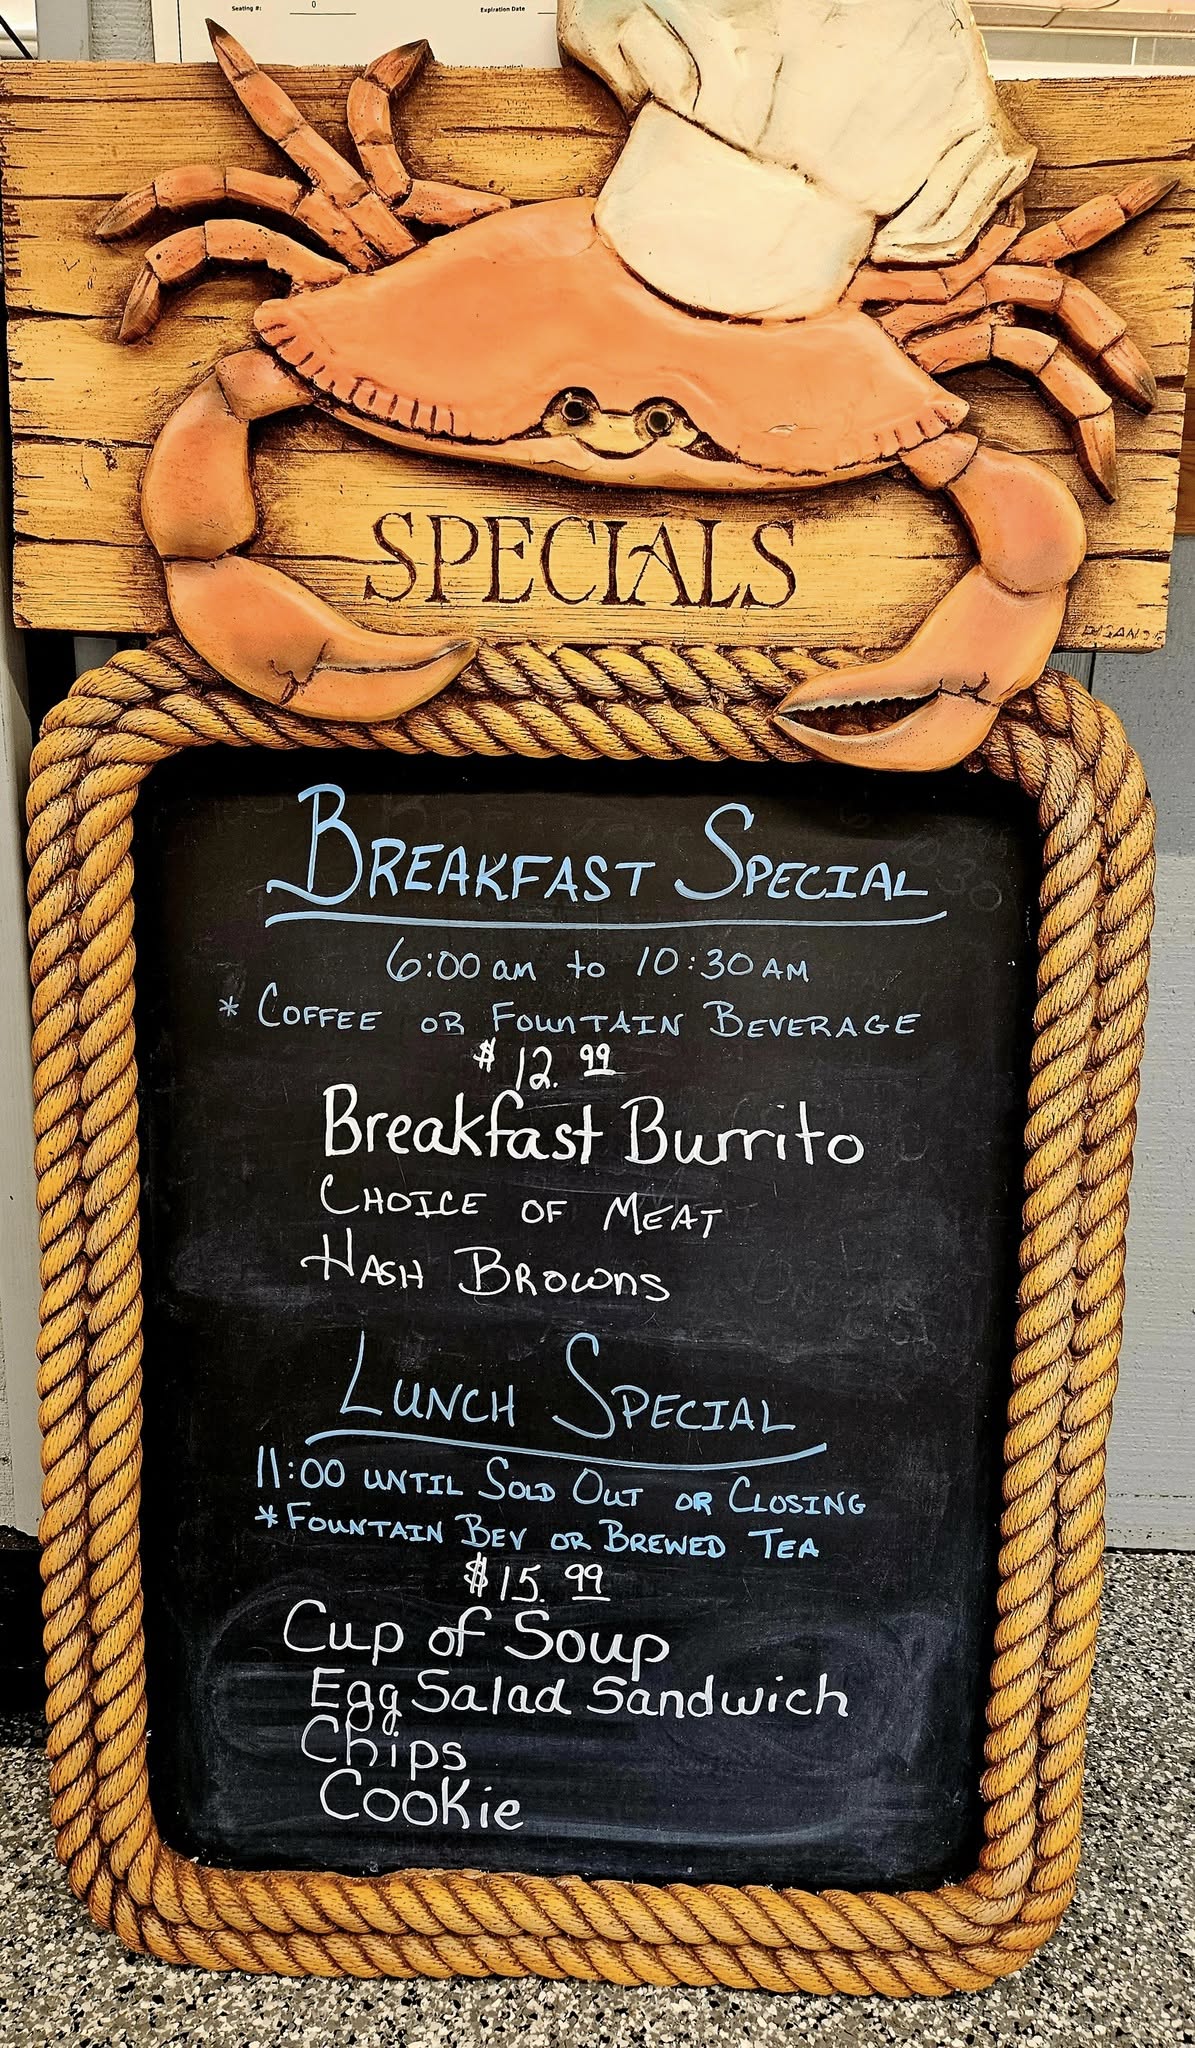 Seating #: 0
Expiration Date
SPECIALS
BREAKFAST SPECIAL
6:00 am to 10:30 AM
* COFFEE OR FOUNTAIN BEVERAGE
$12.99
Breakfast Burrito
CHOICE OF MEAT
HASH BROWNS
LUNCH SPECIAL
11:00 UNTIL SOLD OUT OR CLOSING
*FOUNTAIN BEV OR BREWED TEA
$15.99
Cup of Soup
Egg Salad Sandwich
Chips
Cookie